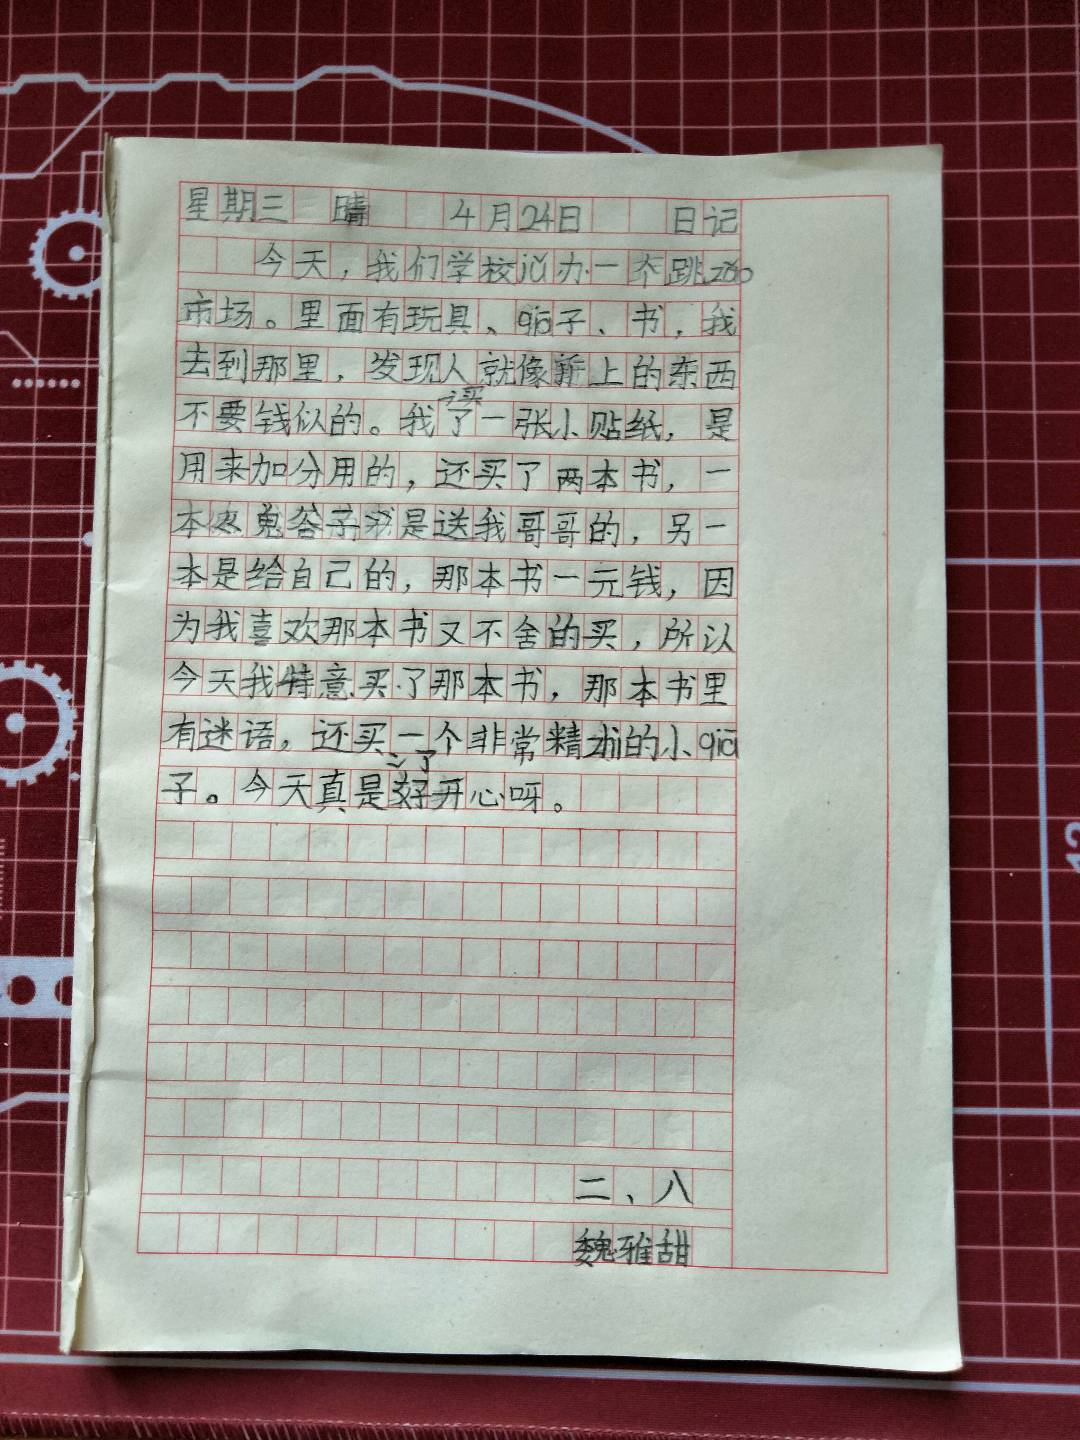 星期三 晴 4月24日 日记
今天，我们学校 办一 跳zǎo
市场。里面有玩具、qiā子、书，我
去到那里，发现人就像 上的东西
不要钱似的。我买了一张小贴纸，是
用来加分用的，还买了两本书，一
本 鬼谷子 是送我哥哥的，另一
本是给自己的，那本书一元钱，因
为我喜欢那本书又不舍的买，所以
今天我特意买了那本书，那本书里
有迷语，还买了一个非常精 的小qiā
子。今天真是好开心呀。
二、八
魏雅甜